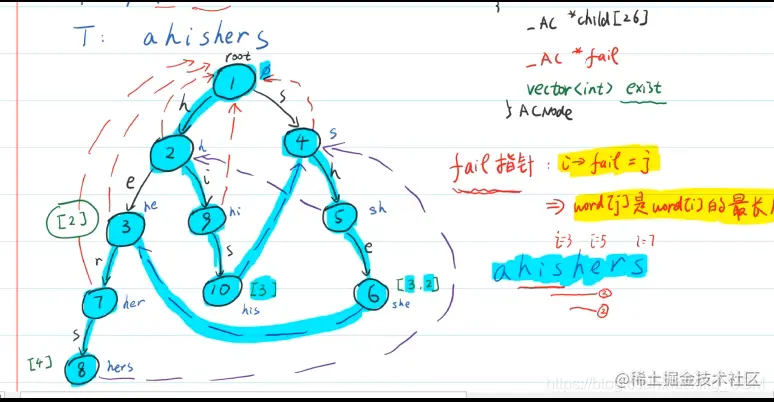 T: ahishers
root
1
h
s
2
h
4
s
e
i
h
[2]
3
he
9
hi
5
sh
r
s
e
7
her
10
[3]
his
6
[3,2]
she
s
[4]
8
hers
}
_AC *child[26]
_AC *fail
vector<int> exist
} ACNode
fail指针: i→fail = j
⇒ word[j]是word[i]的最长
i=3 i=5 i=7
ahishers
②
②
@稀土掘金技术社区